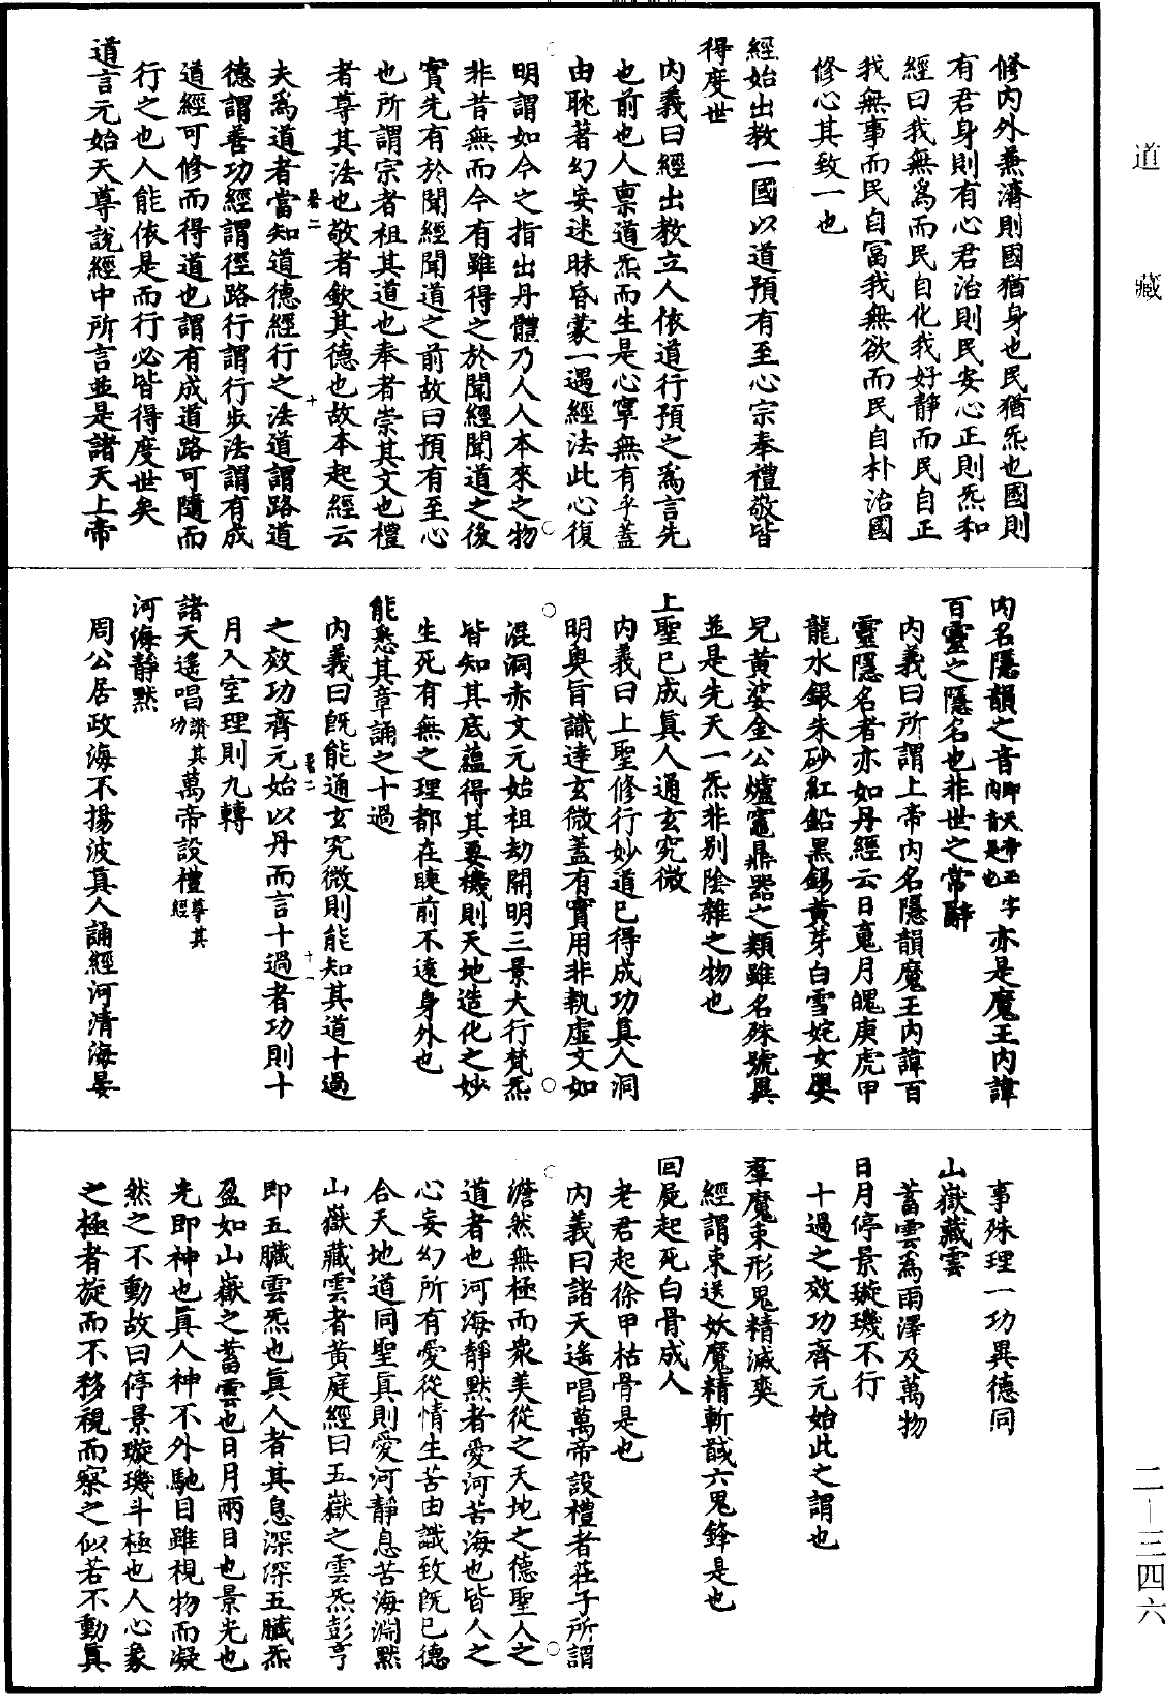 道藏
修内外兼濟則國猶身也民猶炁也國則
有君身則有心君治則民安心正則炁和
經曰我無為而民自化我好靜而民自正
我無事而民自富我無欲而民自朴治國
修心其致一也
經始出教一國以道預有至心宗奉禮敬皆
得度世
内義曰經出教立人依道行預之為言先
也前也人禀道炁而生是心寧無有乎蓋
由耽著幻妄迷昧昏蒙一遇經法此心復
明謂如今之指出丹體乃人人本來之物
非昔無而今有雖得之於聞經聞道之後
實先有於聞經聞道之前故曰預有至心
也所謂宗者祖其道也奉者崇其文也禮
者尊其法也敬者欽其德也故本起經云
夫為道者當知道德經行之法道謂路道
德謂善功經謂徑路行謂行步法謂有成
道經可修而得道也謂有成道路可隨而
行之也人能依是而行必皆得度世矣
道言元始天尊說經中所言並是諸天上帝
内名隱韻之音即天帝正字内音是也亦是魔王内諱
百靈之隱名也非世之常辭
内義曰所謂上帝内名隱韻魔王内諱百
靈隱名者亦如丹經云日䰟月魄庚虎甲
龍水銀朱砂紅鉛黑錫黃芽白雪姹女嬰
兒黃娑金公爐竈鼎器之類雖名殊號異
並是先天一炁非别陰雜之物也
上聖已成真人通玄究微
内義曰上聖修行妙道已得成功真人洞
明奧旨識達玄微蓋有實用非執虛文如
混洞赤文元始祖劫開明三景大行梵炁
皆知其底蘊得其要機則天地造化之妙
生死有無之理都在睫前不遠身外也
能悉其章誦之十過
内義曰既能通玄究微則能知其道十過
之效功齊元始以丹而言十過者功則十
月入室理則九轉
諸天遙唱讚其功萬帝設禮尊其經
河海靜默
周公居政海不揚波真人誦經河清海晏
事殊理一功異德同
山嶽藏雲
蓄雲為雨澤及萬物
日月停景璇璣不行
十過之效功齊元始此之謂也
羣魔束形鬼精滅爽
經謂束送妖魔精斬馘六鬼鋒是也
回屍起死白骨成人
老君起徐甲枯骨是也
内義曰諸天遙唱萬帝設禮者莊子所謂
澹然無極而衆美從之天地之德聖人之
道者也河海靜默者愛河苦海也皆人之
心妄幻所有愛從情生苦由識致既已德
合天地道同聖真則愛河靜息苦海淵默
山嶽藏雲者黃庭經曰五嶽之雲炁彭亨
即五臟雲炁也真人者其息深深五臟炁
盈如山嶽之蓄雲也日月兩目也景光也
光即神也真人神不外馳目雖視物而凝
然之不動故曰停景璇璣斗極也人心象
之極者旋而不移視而察之似若不動真
二-三四六